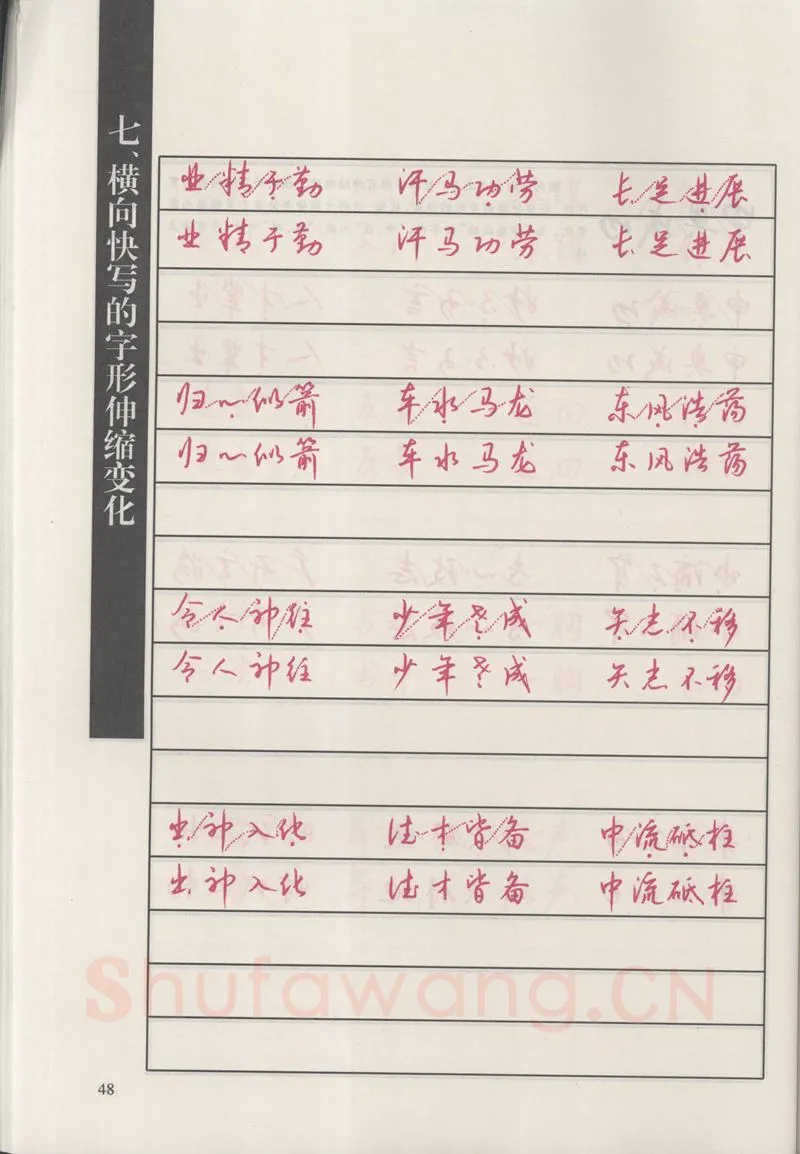 七、横向快写的字形伸缩变化
业精于勤 汗马功劳 长足进展
业精于勤 汗马功劳 长足进展
归心似箭 车水马龙 东风浩荡
归心似箭 车水马龙 东风浩荡
令人神往 少年老成 矢志不移
令人神往 少年老成 矢志不移
出神入化 德才皆备 中流砥柱
出神入化 德才皆备 中流砥柱
Shufawang.CN
48